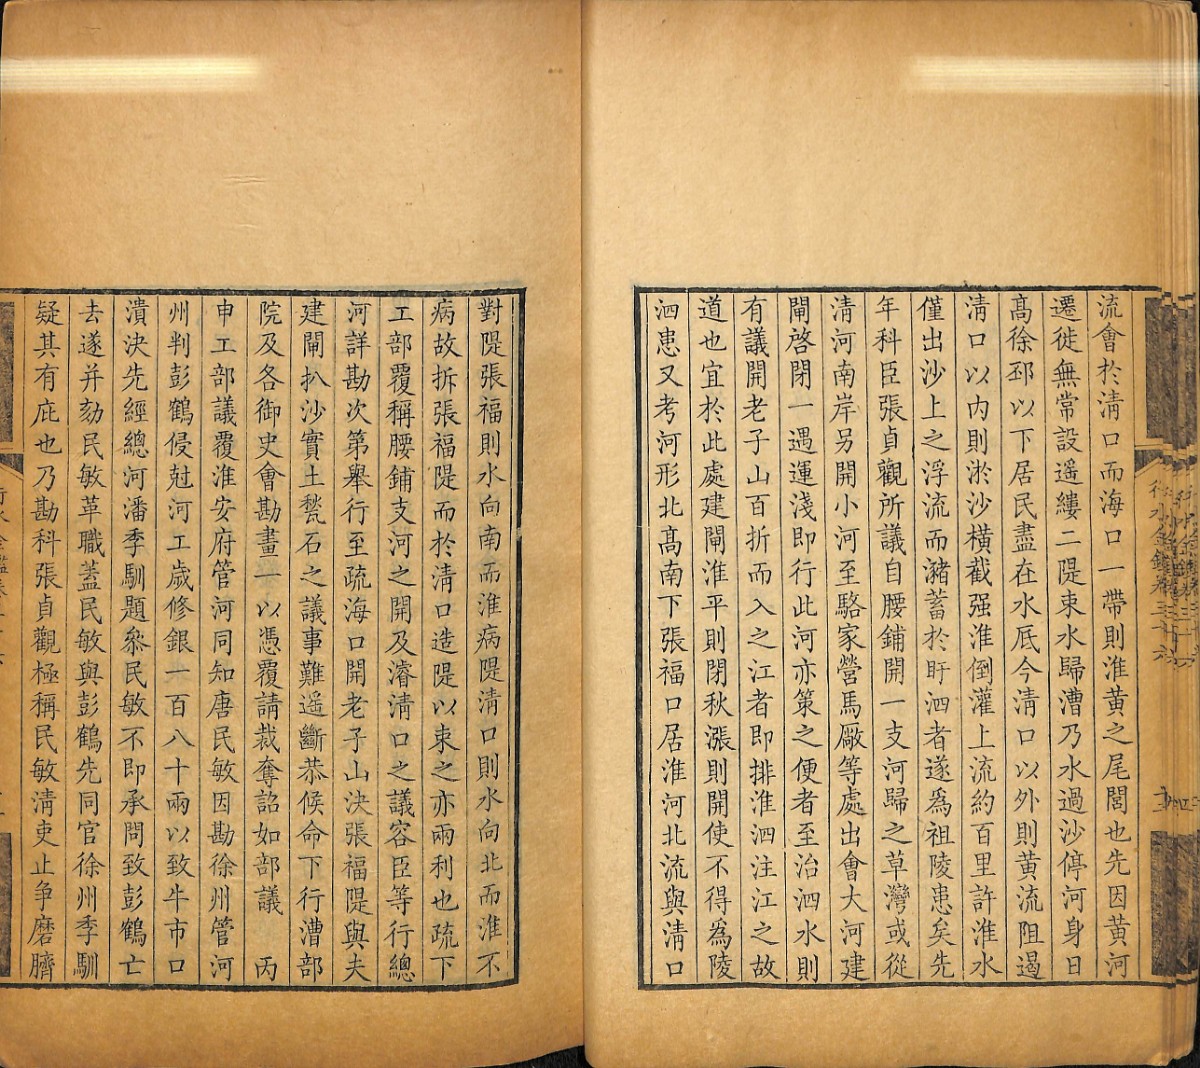 流會於淸口而海口一帶則淮黃之尾閭也先因黃河
遷徙無常設遥縷二隄束水歸漕乃水過沙停河身日
高徐邳以下居民盡在水底今淸口以外則黃流阻遏
淸口以内則淤沙橫截强淮倒灌上流約百里許淮水
僅出沙上之浮流而瀦蓄於盱泗者遂爲祖陵患矣先
年科臣張貞觀所議自腰鋪開一支河歸之草灣或從
淸河南岸另開小河至駱家營馬廠等處出會大河建
閘啓閉一遇運淺卽行此河亦策之便者至治泗水則
有議開老子山百折而入之江者卽排淮泗注江之故
道也宜於此處建閘淮平則閉秋漲則開使不得爲陵
泗患又考河形北高南下張福口居淮河北流與淸口
對隄張福則水向南而淮病隄淸口則水向北而淮不
病故拆張福隄而於淸口造隄以束之亦兩利也疏下
工部覆稱腰鋪支河之開及濬淸口之議容臣等行總
河詳勘次第舉行至疏海口開老子山決張福隄與夫
建閘扒沙實土甃石之議事難遥斷恭候命下行漕部
院及各御史會勘畫一以憑覆請裁奪詔如部議 丙
申工部議覆淮安府管河同知唐民敏因勘徐州管河
州判彭鶴侵尅河工歲修銀一百八十兩以致牛市口
潰決先經總河潘季馴題叅民敏不卽承問致彭鶴亡
去遂并劾民敏革職蓋民敏與彭鶴先同官徐州季馴
疑其有庇也乃勘科張貞觀極稱民敏淸吏止爭磨臍